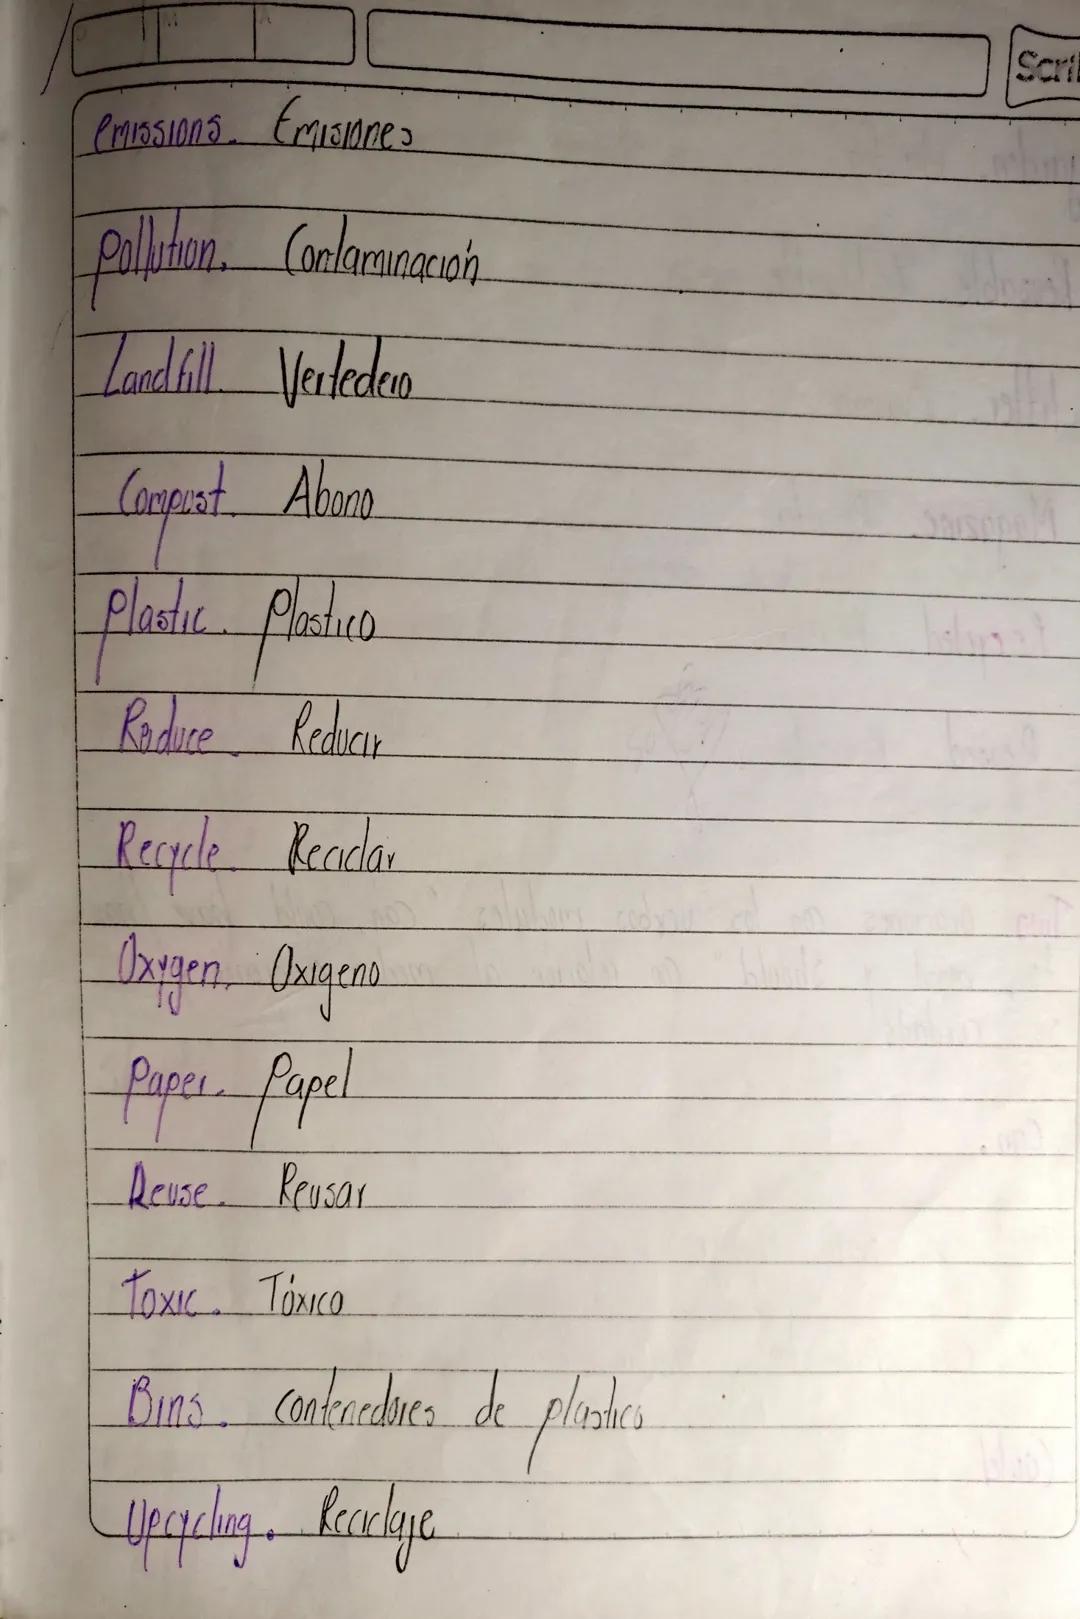 Scri
emissions. Emisiones
Pollution. Contaminación
Landfill. Vertedero
Compost. Abono
Plastic. Plastico
Reduce. Reducir
Recycle. Reciclar
Oxygen. Oxigeno
Paper. Papel
Reuse. Reusar
Toxic. Tóxico
Bins. Contenedores de plastico
Upcycling. Reciclaje